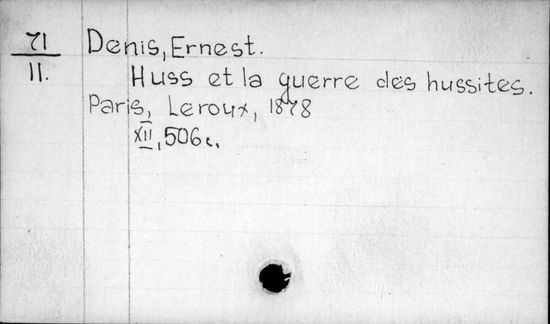 71 Denis, Ernest.
II. Huss et la guerre des hussites.
Paris, Leroux, 1878
XII, 506 c.